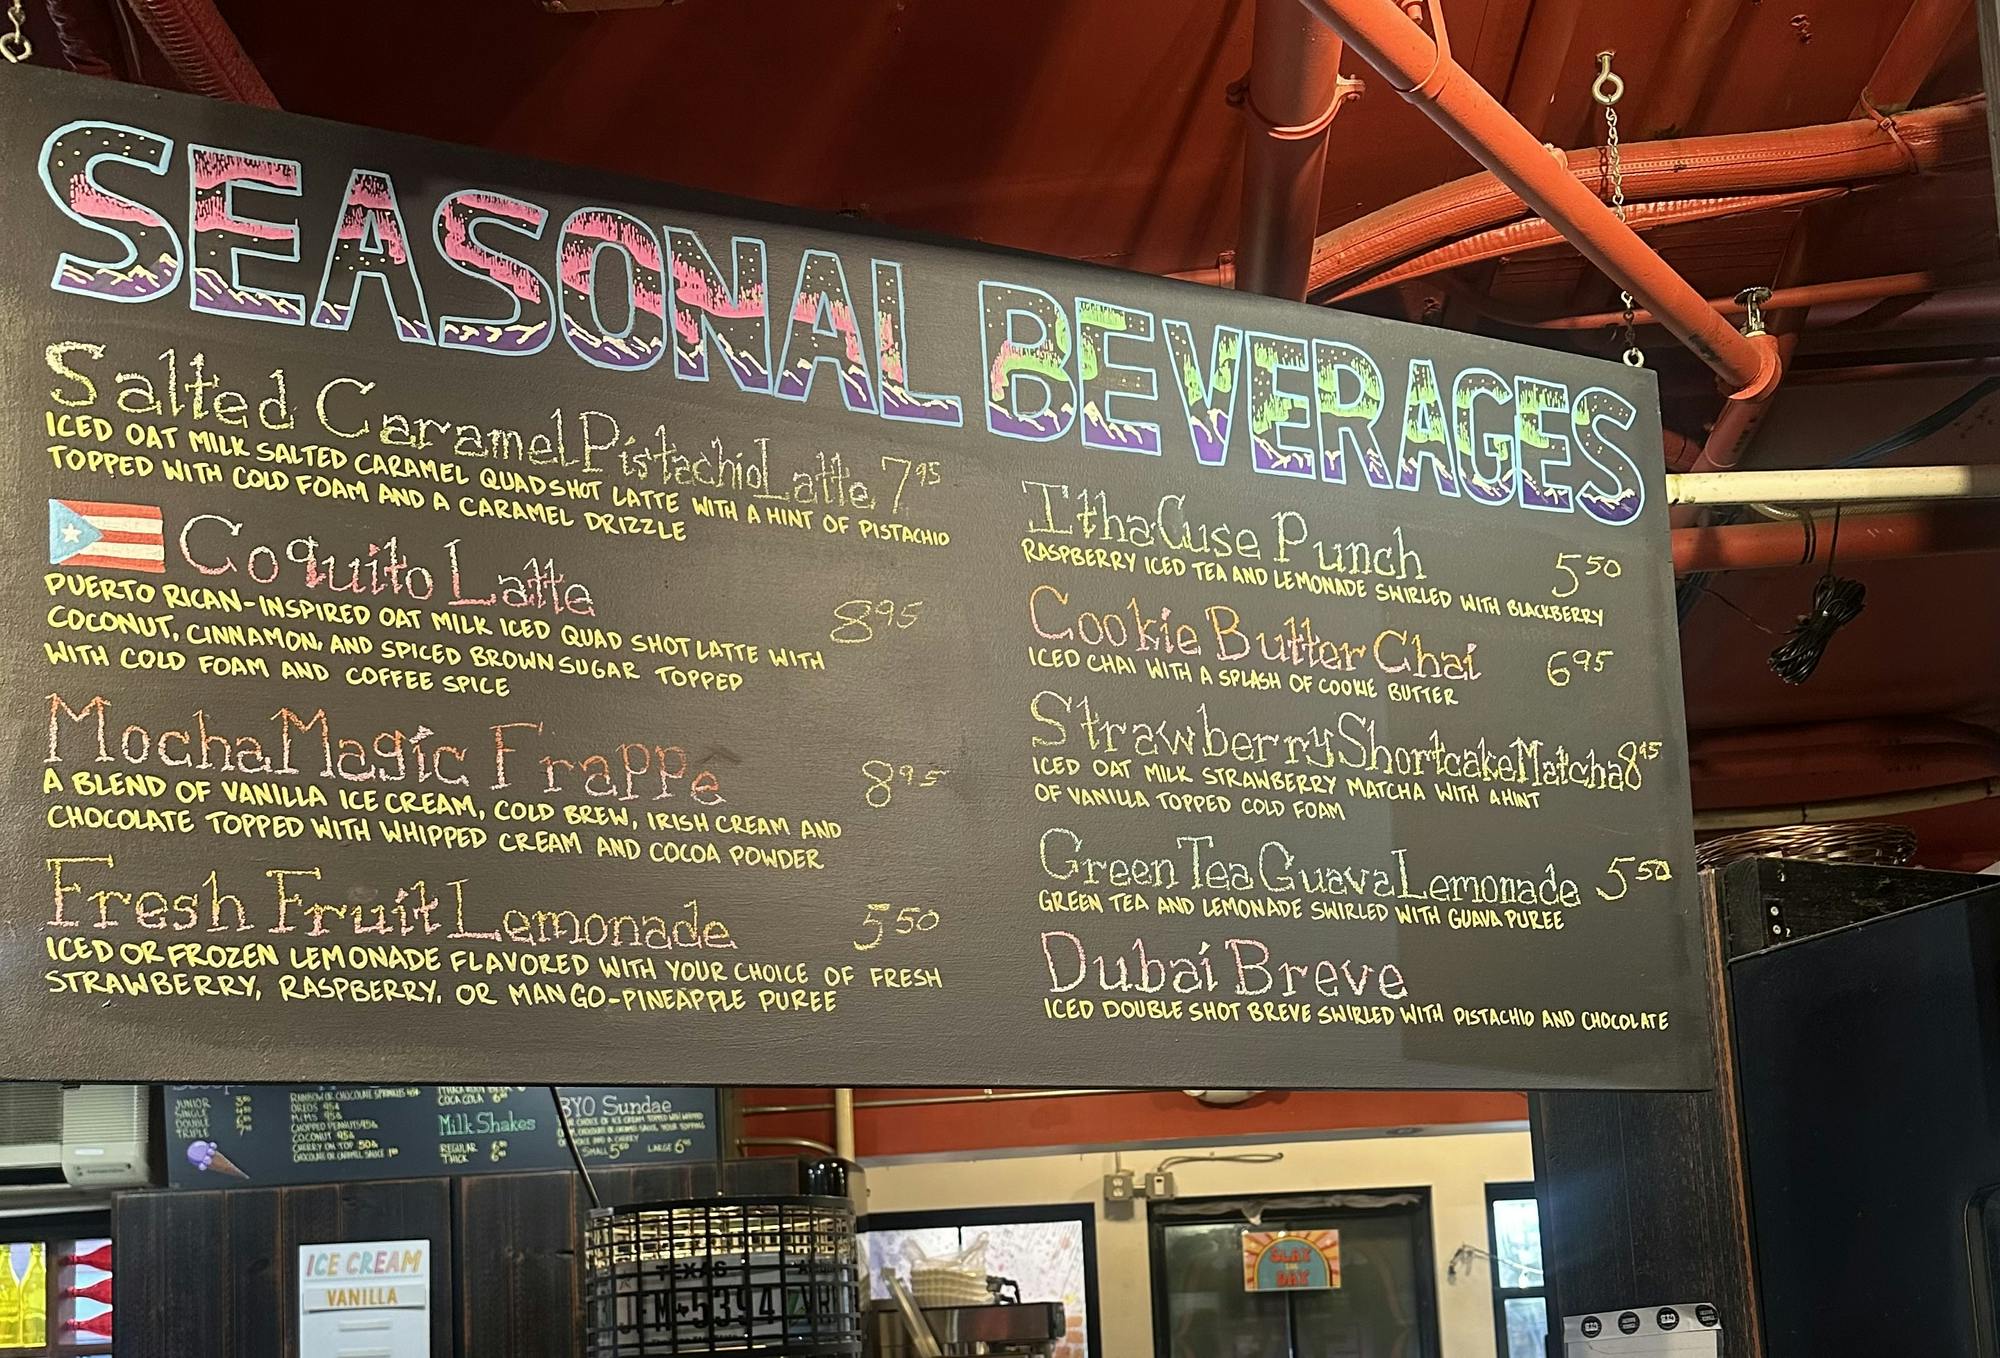 SEASONAL BEVERAGES
Salted Caramel Pistachio Latte 7.95
ICED OAT MILK SALTED CARAMEL QUADSHOT LATTE WITH A HINT OF PISTACHIO
TOPPED WITH COLD FOAM AND A CARAMEL DRIZZLE
Coquito Latte
8.95
PUERTO RICAN-INSPIRED OAT MILK ICED QUAD SHOT LATTE WITH
COCONUT, CINNAMON, AND SPICED BROWN SUGAR TOPPED
WITH COLD FOAM AND COFFEE SPICE
Mocha Magic Frappe 8.95
A BLEND OF VANILLA ICE CREAM, COLD BREW, IRISH CREAM AND
CHOCOLATE TOPPED WITH WHIPPED CREAM AND COCOA POWDER
Fresh Fruit Lemonade 5.50
ICED OR FROZEN LEMONADE FLAVORED WITH YOUR CHOICE OF FRESH
STRAWBERRY, RASPBERRY, OR MANGO-PINEAPPLE PUREE
IthaCuse Punch 5.50
RASPBERRY ICED TEA AND LEMONADE SWIRLED WITH BLACKBERRY
Cookie Butter Chai 6.95
ICED CHAI WITH A SPLASH OF COOKIE BUTTER
Strawberry Shortcake Matcha 8.95
ICED OAT MILK STRAWBERRY MATCHA WITH A HINT
OF VANILLA TOPPED COLD FOAM
Green Tea Guava Lemonade 5.50
GREEN TEA AND LEMONADE SWIRLED WITH GUAVA PUREE
Dubai Breve
ICED DOUBLE SHOT BREVE SWIRLED WITH PISTACHIO AND CHOCOLATE
JUNIOR
SINGLE
DOUBLE
TRIPLE
RAINBOW OR CHOCOLATE SPRINKLES
OREOS 95¢
M&MS 95¢
CHOPPED PEANUTS 95¢
COCONUT 95¢
CHERRY ON TOP 50¢
CHOCOLATE OR CARAMEL SAUCE
COCA COLA
Milk Shakes
REGULAR
THICK
BYO Sundae
SMALL LARGE
ICE CREAM
VANILLA
TEXAS
SLAY
THE
DAY